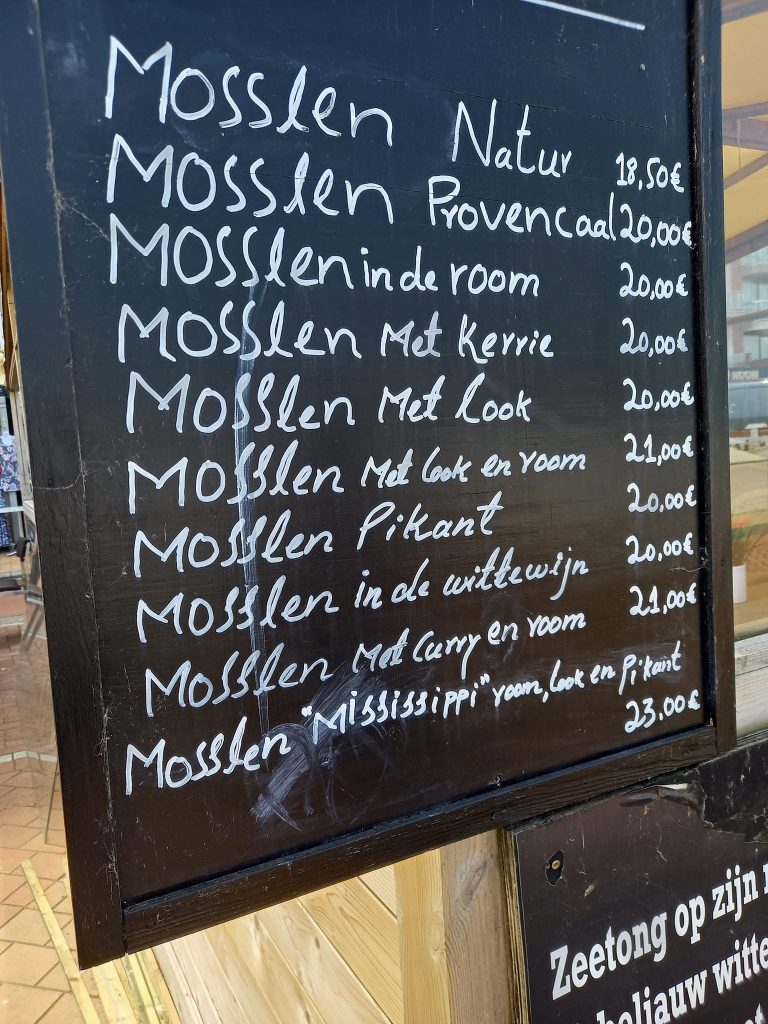 Mosslen Natur 18,50€
Mosslen Provencaal 20,00€
Mosslen in de room 20,00€
Mosslen Met Kerrie 20,00€
Mosslen Met look 20,00€
Mosslen Met look en room 21,00€
Mosslen Pikant 20,00€
Mosslen in de witte wijn 20,00€
Mosslen Met Curry en room 21,00€
Mosslen "Mississippi" room, look en Pikant
23.00€
Zeetong op zijn
witte